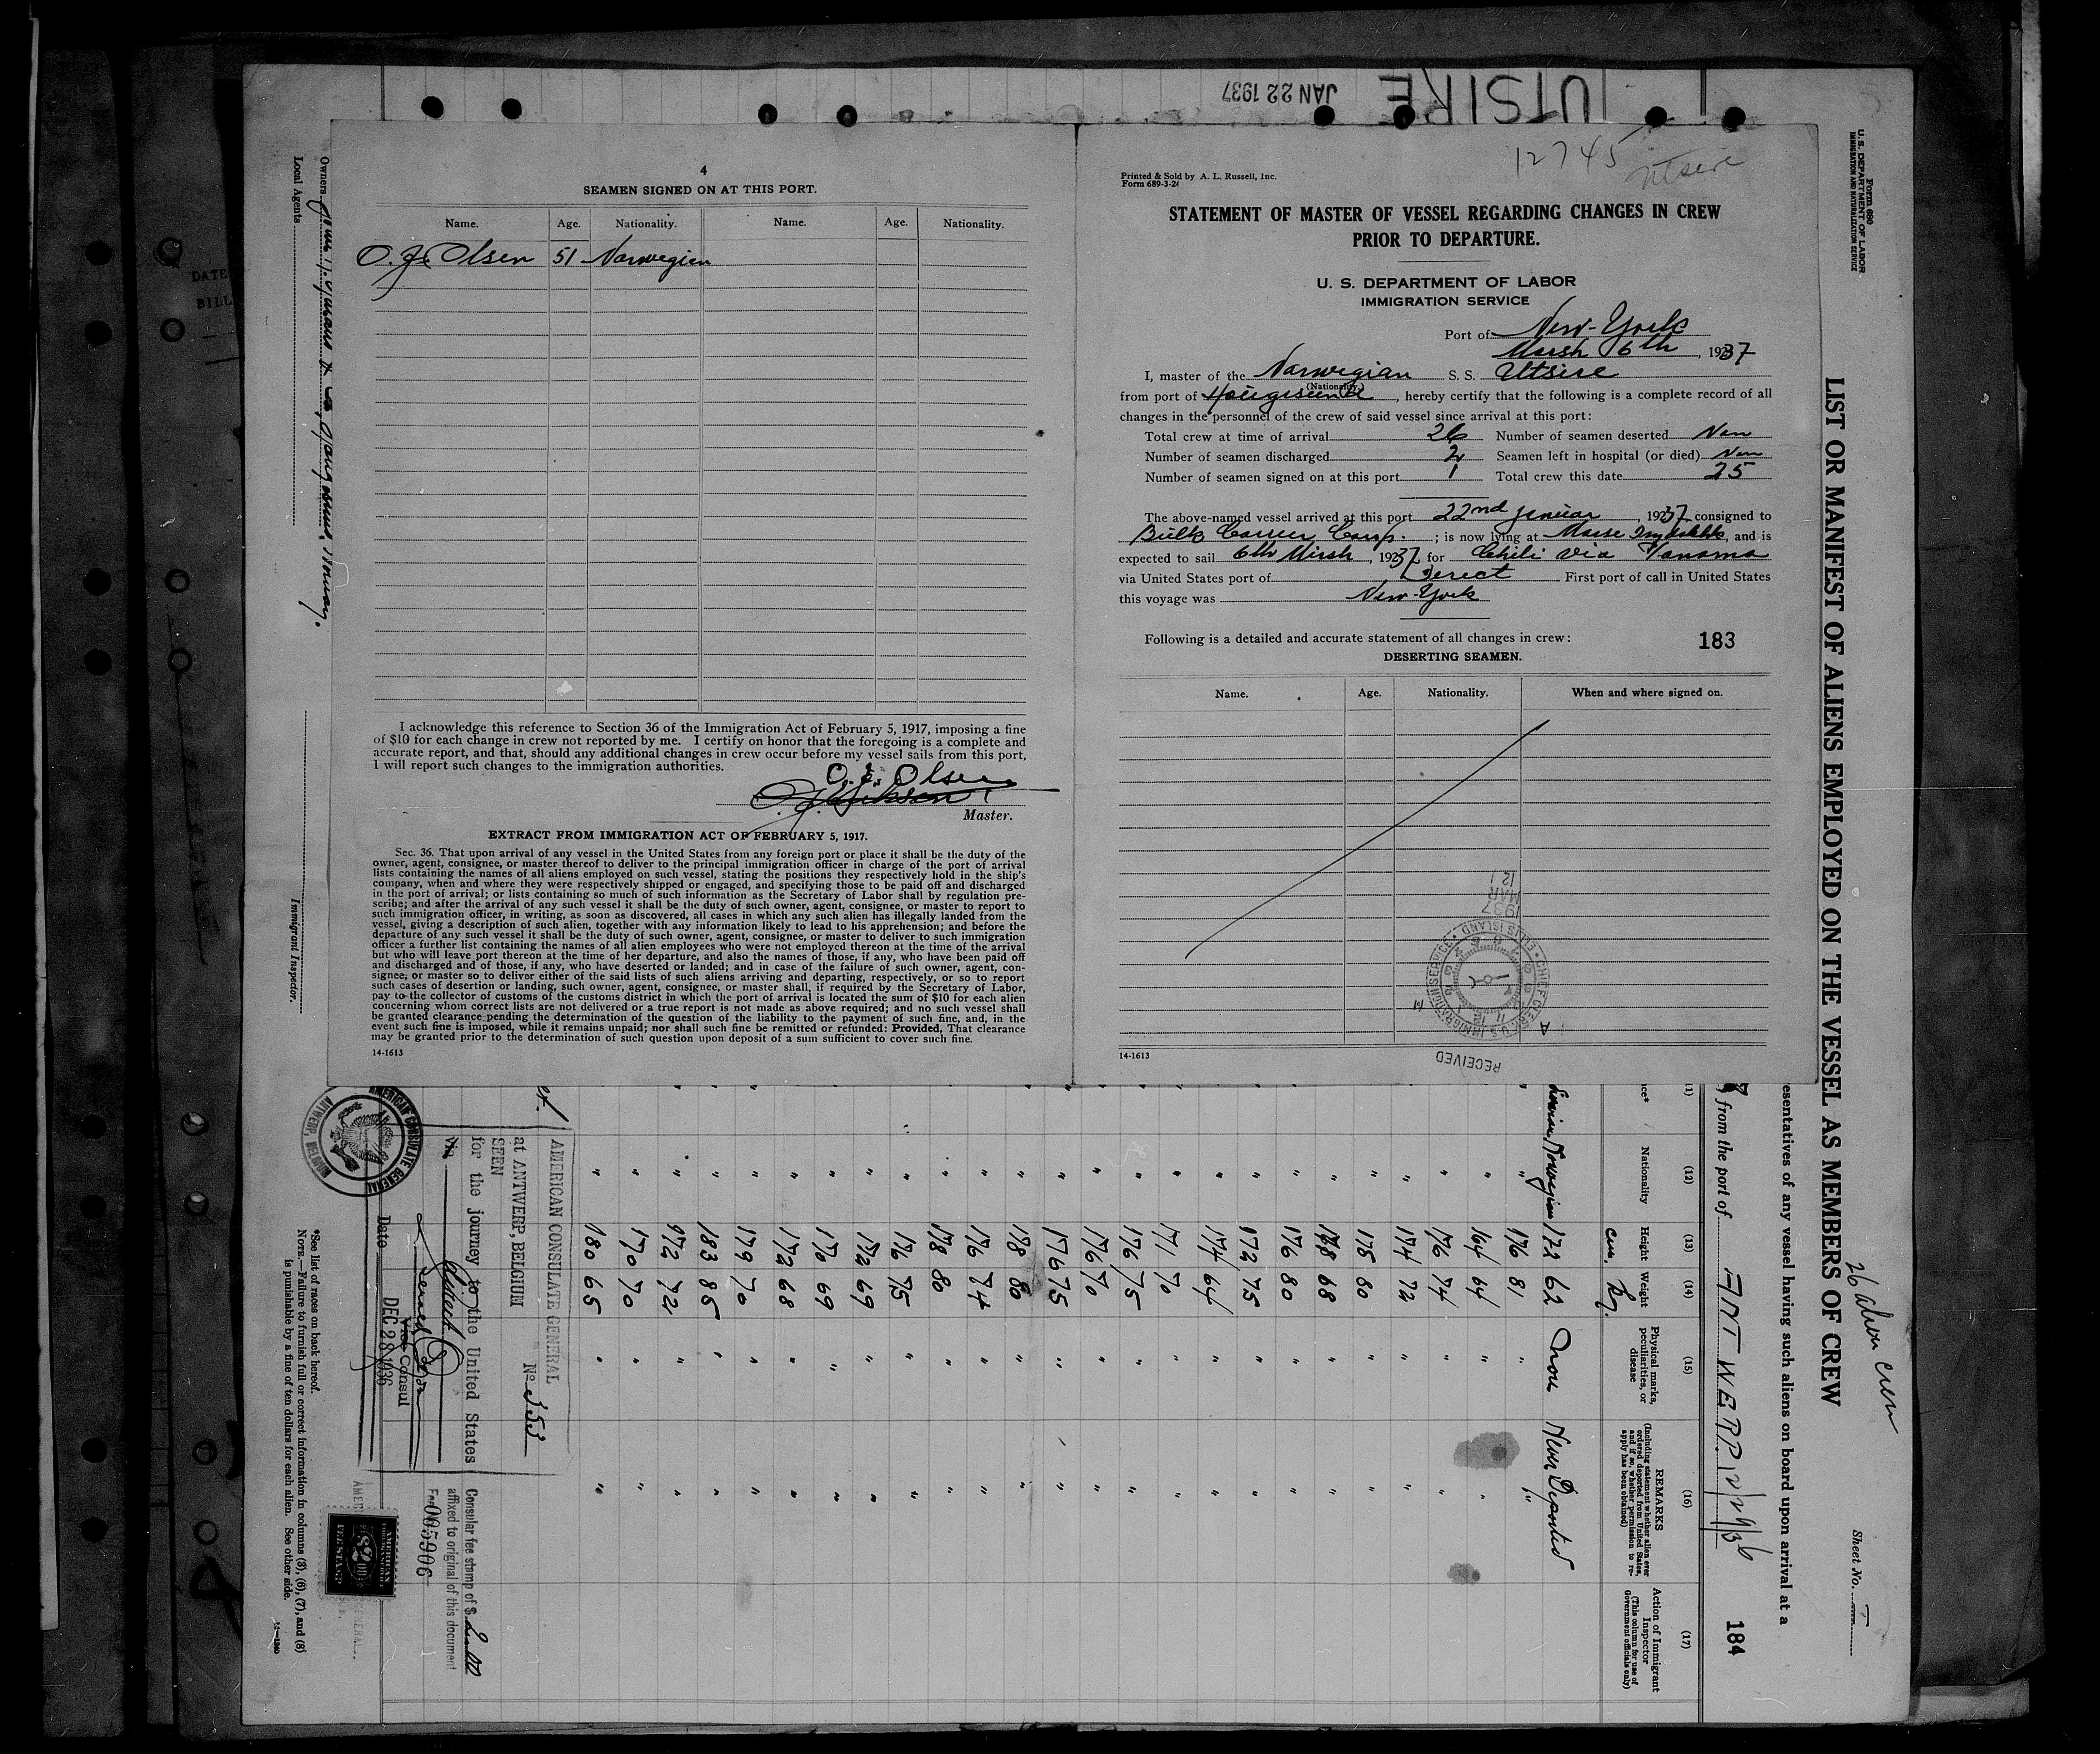 UTSIRE
JAN 22 1937
4
SEAMEN SIGNED ON AT THIS PORT.
Name. Age. Nationality. Name. Age. Nationality.
O. J. Olsen 51 Norwegian
I acknowledge this reference to Section 36 of the Immigration Act of February 5, 1917, imposing a fine
of $10 for each change in crew not reported by me. I certify on honor that the foregoing is a complete and
accurate report, and that, should any additional changes in crew occur before my vessel sails from this port,
I will report such changes to the immigration authorities.
Olsen
Master.
EXTRACT FROM IMMIGRATION ACT OF FEBRUARY 5, 1917.
Sec. 36. That upon arrival of any vessel in the United States from any foreign port or place it shall be the duty of the
owner, agent, consignee, or master thereof to deliver to the principal immigration officer in charge of the port of arrival
lists containing the names of all aliens employed on such vessel, stating the positions they respectively hold in the ship's
company, when and where they were respectively shipped or engaged, and specifying those to be paid off and discharged
in the port of arrival; or lists containing so much of such information as the Secretary of Labor shall by regulation pre-
scribe; and after the arrival of any such vessel it shall be the duty of such owner, agent, consignee, or master to report to
such immigration officer, in writing, as soon as discovered, all cases in which any such alien has illegally landed from the
vessel, giving a description of such alien, together with any information likely to lead to his apprehension; and before the
departure of any such vessel it shall be the duty of such owner, agent, consignee, or master to deliver to such immigration
officer a further list containing the names of all alien employees who were not employed thereon at the time of the arrival
but who will leave port thereon at the time of her departure, and also the names of those, if any, who have been paid off
and discharged and of those, if any, who have deserted or landed; and in case of the failure of such owner, agent, con-
signee, or master so to deliver either of the said lists of such aliens arriving and departing, respectively, or so to report
such cases of desertion or landing, such owner, agent, consignee, or master shall, if required by the Secretary of Labor,
pay to the collector of customs of the customs district in which the port of arrival is located the sum of $10 for each alien
concerning whom correct lists are not delivered or a true report is not made as above required; and no such vessel shall
be granted clearance pending the determination of the question of the liability to the payment of such fine, and, in the
event such fine is imposed, while it remains unpaid; nor shall such fine be remitted or refunded: Provided, That clearance
may be granted prior to the determination of such question upon deposit of a sum sufficient to cover such fine.
14-1613
12745
Utsire
Printed & Sold by A. L. Russell, Inc.
Form 689-3-26
STATEMENT OF MASTER OF VESSEL REGARDING CHANGES IN CREW
PRIOR TO DEPARTURE.
U. S. DEPARTMENT OF LABOR
IMMIGRATION SERVICE
Port of New-York
Marsh 6th, 1937
I, master of the Norwegian S. S. Utsire
(Nationality)
from port of Haugesund, hereby certify that the following is a complete record of all
changes in the personnel of the crew of said vessel since arrival at this port:
Total crew at time of arrival 26 Number of seamen deserted Non
Number of seamen discharged 2 Seamen left in hospital (or died) Non
Number of seamen signed on at this port 1 Total crew this date 25
The above-named vessel arrived at this port 22nd Januar, 1937 consigned to
Bulk Carrier Corp.; is now lying at Morse, and is
expected to sail 6th Mirsh, 1937 for Chili via Panama
via United States port of Derect First port of call in United States
this voyage was New-York
Following is a detailed and accurate statement of all changes in crew: 183
DESERTING SEAMEN.
Name. Age. Nationality. When and where signed on.
1937
MAR
12
CHIEF CLERK U. S. IMMIGRATION SERVICE ELLIS ISLAND
RECEIVED
14-1613
Form 690
U. S. DEPARTMENT OF LABOR
IMMIGRATION AND NATURALIZATION SERVICE
LIST OR MANIFEST OF ALIENS EMPLOYED ON THE VESSEL AS MEMBERS OF CREW
26 alien crew
Sheet No.
esentatives of any vessel having such aliens on board upon arrival at a
from the port of ANTWERP 12/29/36
184
(12) (13) (14) (15) (16) (17)
Nationality Height Weight
cm. kg.
Physical marks, peculiarities, or disease
REMARKS
(Including statement whether alien ever ordered deported from United States, and if so, whether permission to reapply has been obtained)
Action of Immigrant Inspector
(This column for use of Government officials only)
Norwegian 172 62 None Never Deported
" 176 81 " "
" 164 64 " "
" 176 74 " "
" 174 72 " "
" 175 80 " "
" 168 68 " "
" 176 80 " "
" 172 75 " "
" 174 64 " "
" 171 70 " "
" 176 75 " "
" 176 70 " "
" 176 75 " "
" 178 80 " "
" 176 74 " "
" 178 80 " "
" 176 75 " "
" 172 69 " "
" 170 69 " "
" 172 68 " "
" 179 70 " "
" 183 85 " "
" 172 72 " "
" 170 70 " "
" 180 65 " "
AMERICAN CONSULATE GENERAL
at ANTWERP, BELGIUM
No 353
SEEN
for the journey to the United States
Via direct
Vice Consul
Date DEC 28 1936
AMERICAN CONSULATE GENERAL
ANTWERP, BELGIUM
Consular fee stamp of $
affixed to original of this document
005906
AMERICAN
FEE STAMP
$2.00
*See list of races on back hereof.
NOTE.—Failure to furnish full or correct information in columns (3), (6), (7), and (8)
is punishable by a fine of ten dollars for each alien. See other side.
Owners Haugesund, Norway.
Local Agents
Immigrant Inspector.